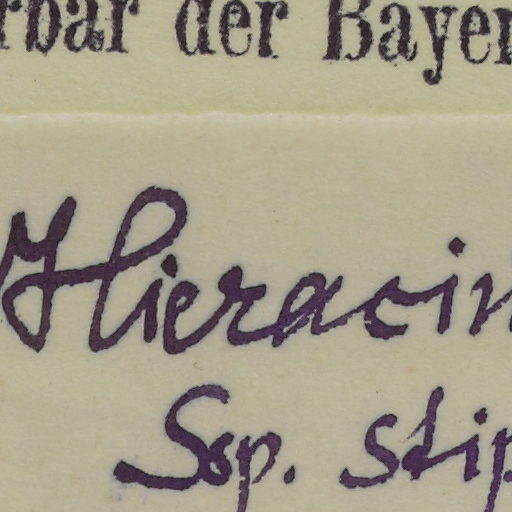 rbar der Bayer
Hieracin
Ssp. stip